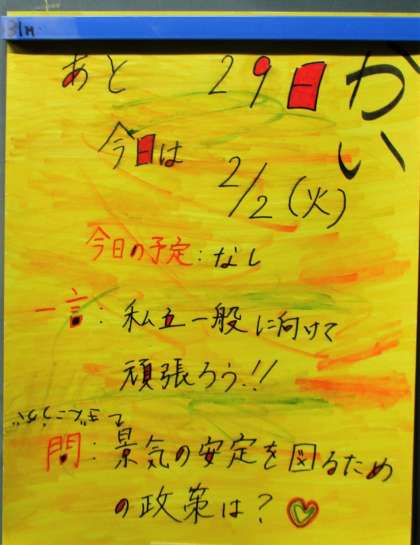 あと 29日
かい
今日は
2/2(火)
今日の予定:なし
一言:私立一般に向けて
頑張ろう!!
問:景気の安定を図るため
の政策は?